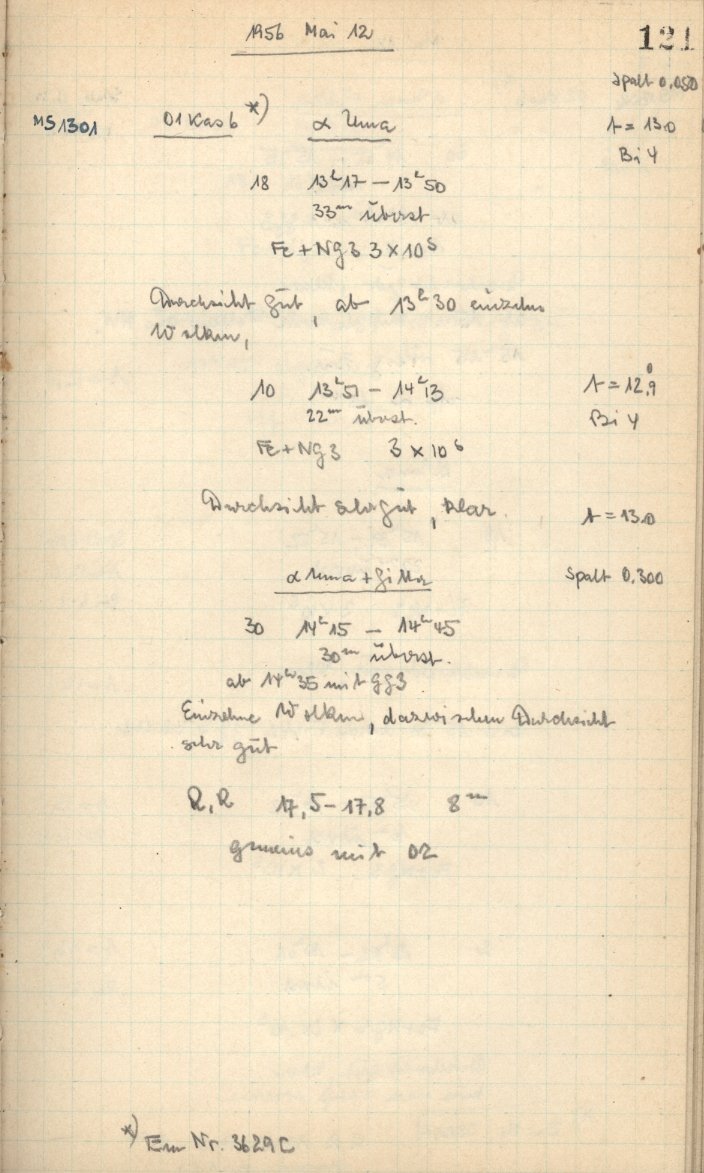 1956 Mai 12 121
Spalt 0.050
MS1301 01 Kas 6 *) α Uma t = 13.0
Bi 4
18 13ʰ17 – 13ʰ50
33ᵐ überst
Fe + Ng3 3 × 10⁵
Durchsicht gut, ab 13ʰ30 einzelne
Wolken,
10 13ʰ51 – 14ʰ13 t = 12.9
22ᵐ überst. Bi 4
Fe + Ng3 3 × 10⁶
Durchsicht sehr gut, klar. t = 13.0
α Uma + Spalt 0.300
30 14ʰ15 – 14ʰ45
30ᵐ überst.
ab 14ʰ35 mit GG3
Einzelne Wolken, dazwischen Durchsicht
sehr gut
R, R 17,5 – 17,8 8ᵐ
mit 02
*) Em Nr. 3629C